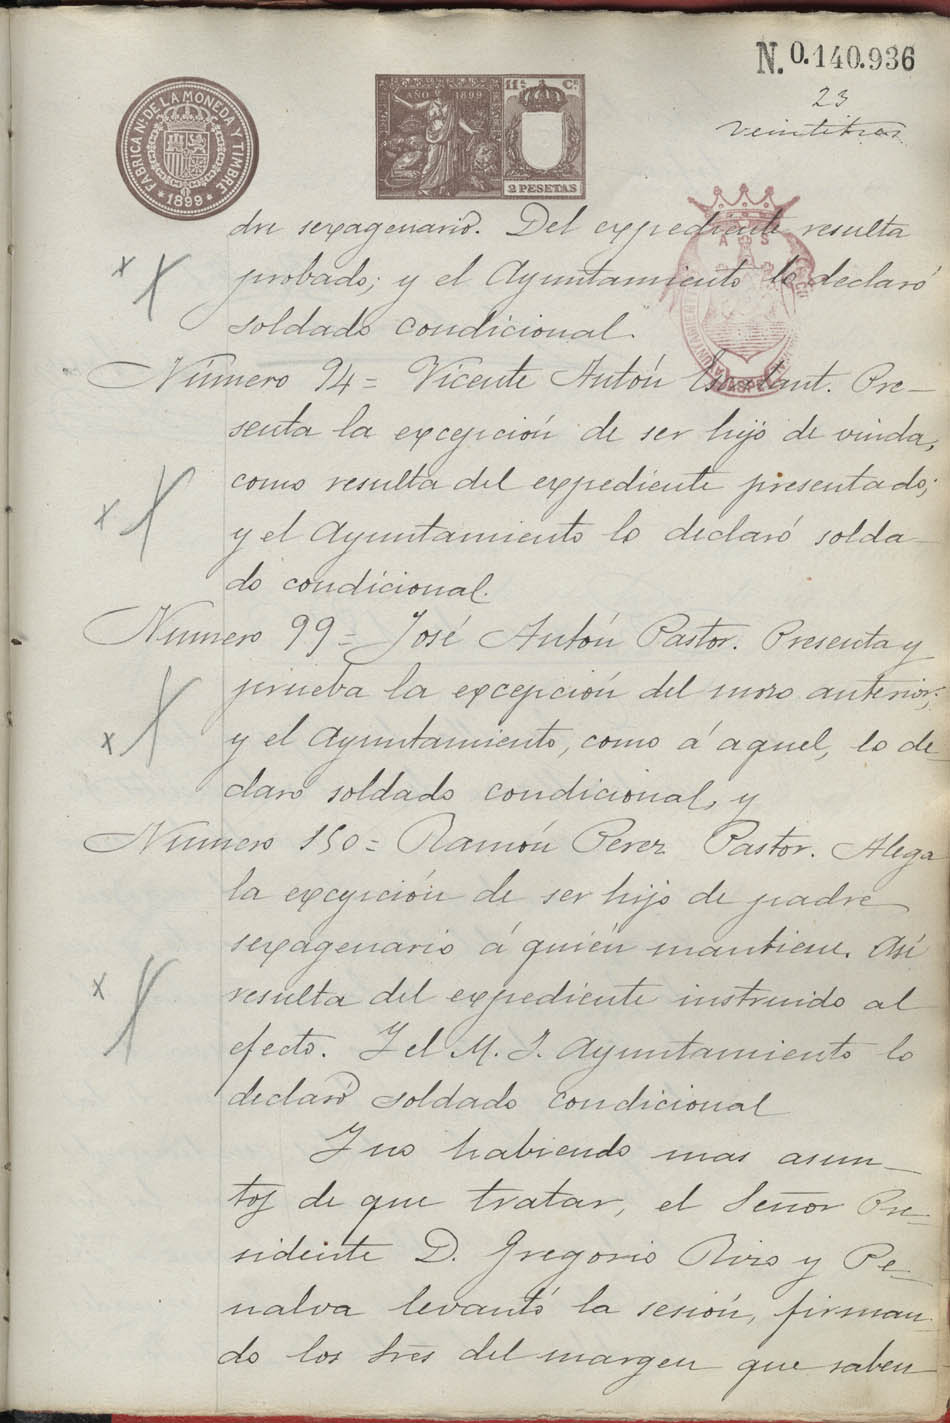 N. 0.140.936
23
veintitres
FABRICA NL. DE LA MONEDA Y TIMBRE
1899
AÑO 1899
11ª Cª
2 PESETAS
dre sexagenario. Del expediente resulta
probado; y el Ayuntamiento lo declaró
soldado condicional.
Número 94= Vicente Antón . Pre-
senta la excepción de ser hijo de viuda,
como resulta del expediente presentado;
y el Ayuntamiento lo declaró solda-
do condicional.
Número 99= José Antón Pastor. Presenta y
prueba la excepción del mozo anterior;
y el Ayuntamiento, como á aquel, lo de-
claro soldado condicional, y
Número 150= Ramón Perez Pastor. Alega
la excepción de ser hijo de padre
sexagenario á quién mantiene. Así
resulta del expediente instruido al
efecto. Y el M. I. Ayuntamiento lo
declaró soldado condicional
Y no habiendo mas asun-
tos de que tratar, el Señor Pre-
sidente D. Gregorio y Pe-
nalva levantó la sesión, firman-
do los Sres del margen que saben